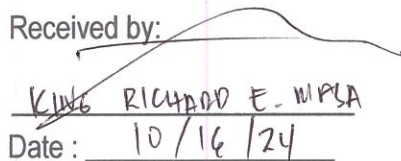 Received by:
KING RICHARD E. MASA
Date : 10/16/24